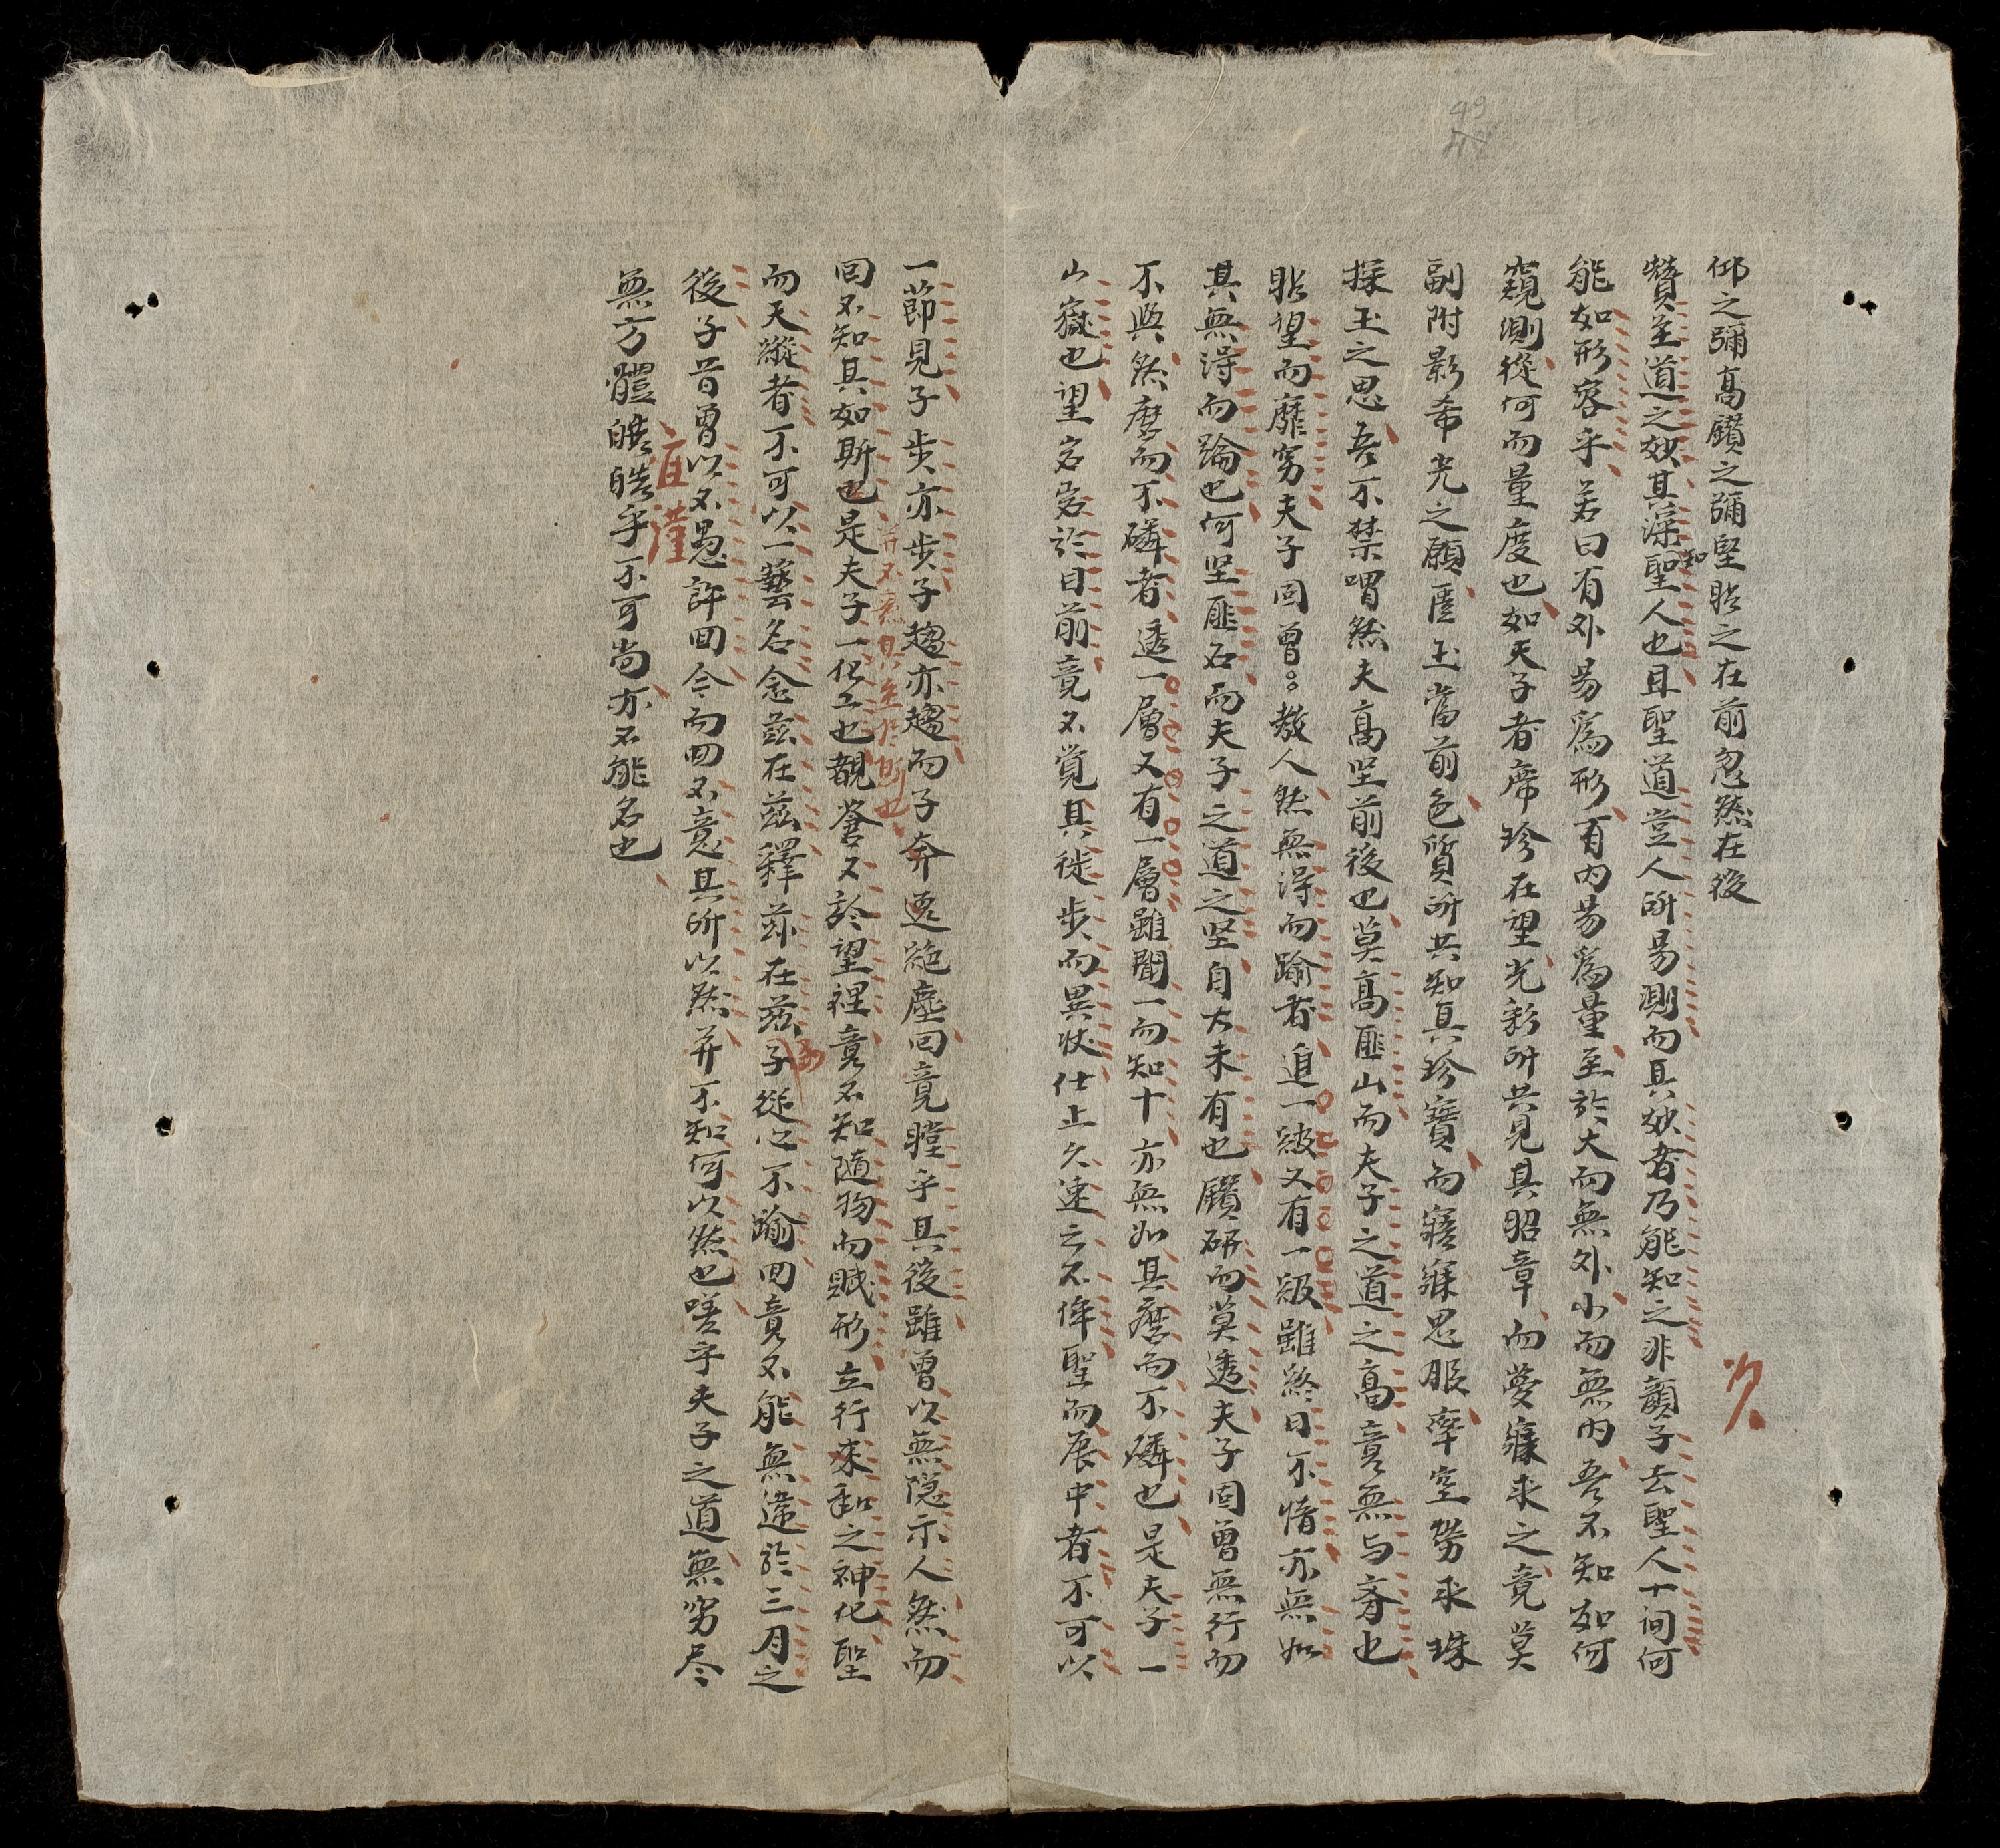 仰之彌高鑽之彌堅瞻之在前忽然在後
贊至道之妙其深知聖人也且聖道豈人所易測而其妙者乃能知之非顏子去聖人十间何
能如形容乎若曰有外昜爲形有内昜爲量至於大而無外小而無内吾不知如何
窺測從何而量度也如天子者席珍在望光彩所共見其昭章而夢寐求之竟莫
副附影希光之願匿玉當前色質所共知真珍寶而寤寐思服率空勞求珠
探玉之思吾不禁喟然夫高坚前後也莫高匪山而夫子之道之高竟無与齊也
瞻望而靡穷夫子固曾教人然無淂而踰者進一級又有一級雖終日不惰亦無如
其無淂而踰也何坚匪石而夫子之道之坚自古未有也鑽研而莫透夫子固曾無行而
不與然磨而不磷者透一層又有一層雖聞一而知十亦無如其磨而不磷也是夫子一
山嶽也望宕宕於目前竟不覚其徙步而異状仕止久速之不侔聖而辰中者不可以
一節見子步亦步子趨亦趨而子奔逸絶塵回竟瞠乎其後雖曾以無隐示人然而
回不知其如斯也是夫子一化工也觀蒼又於望裡竟不知隨物而賦形立行來和之神化聖
并不意其至於斯也
而天縱者不可以一藝名念兹在兹釋兹在兹子從心不踰回竟不能無違於三月之
後子昔曾以不愚許回今而回不意其所以然并不知何以然也嗟乎夫子之道無穷尽
無方體皜皜乎不可尚亦不能名也
次